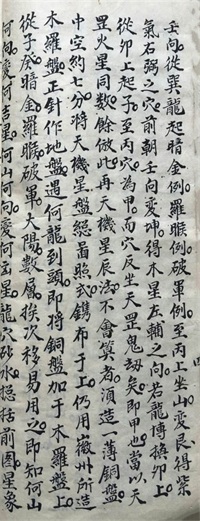 壬向從巽龍起暗金例羅睺例破軍例至丙上坐山變艮得紫
氣右弼之穴前朝壬向變坤得木星左輔之向若龍博換卯上
從卯上起子至丙穴為甲而穴反坐天罡鬼刼矣即甲也當以天
罡火星同數餘倣此再天機星辰法不會算者須造一薄銅盤
中空約七分將天機星盤悉畐照式鐫布于上仍用徽州所造
木羅盤正針作地盤遇何龍到頭即將銅盤加于木羅盤上
從子癸暗金羅睺破軍太陽數屬挨次移易用之即知何山
何向變何吉星何山何向變何凶星龍穴砂水揔括前圖星象
四